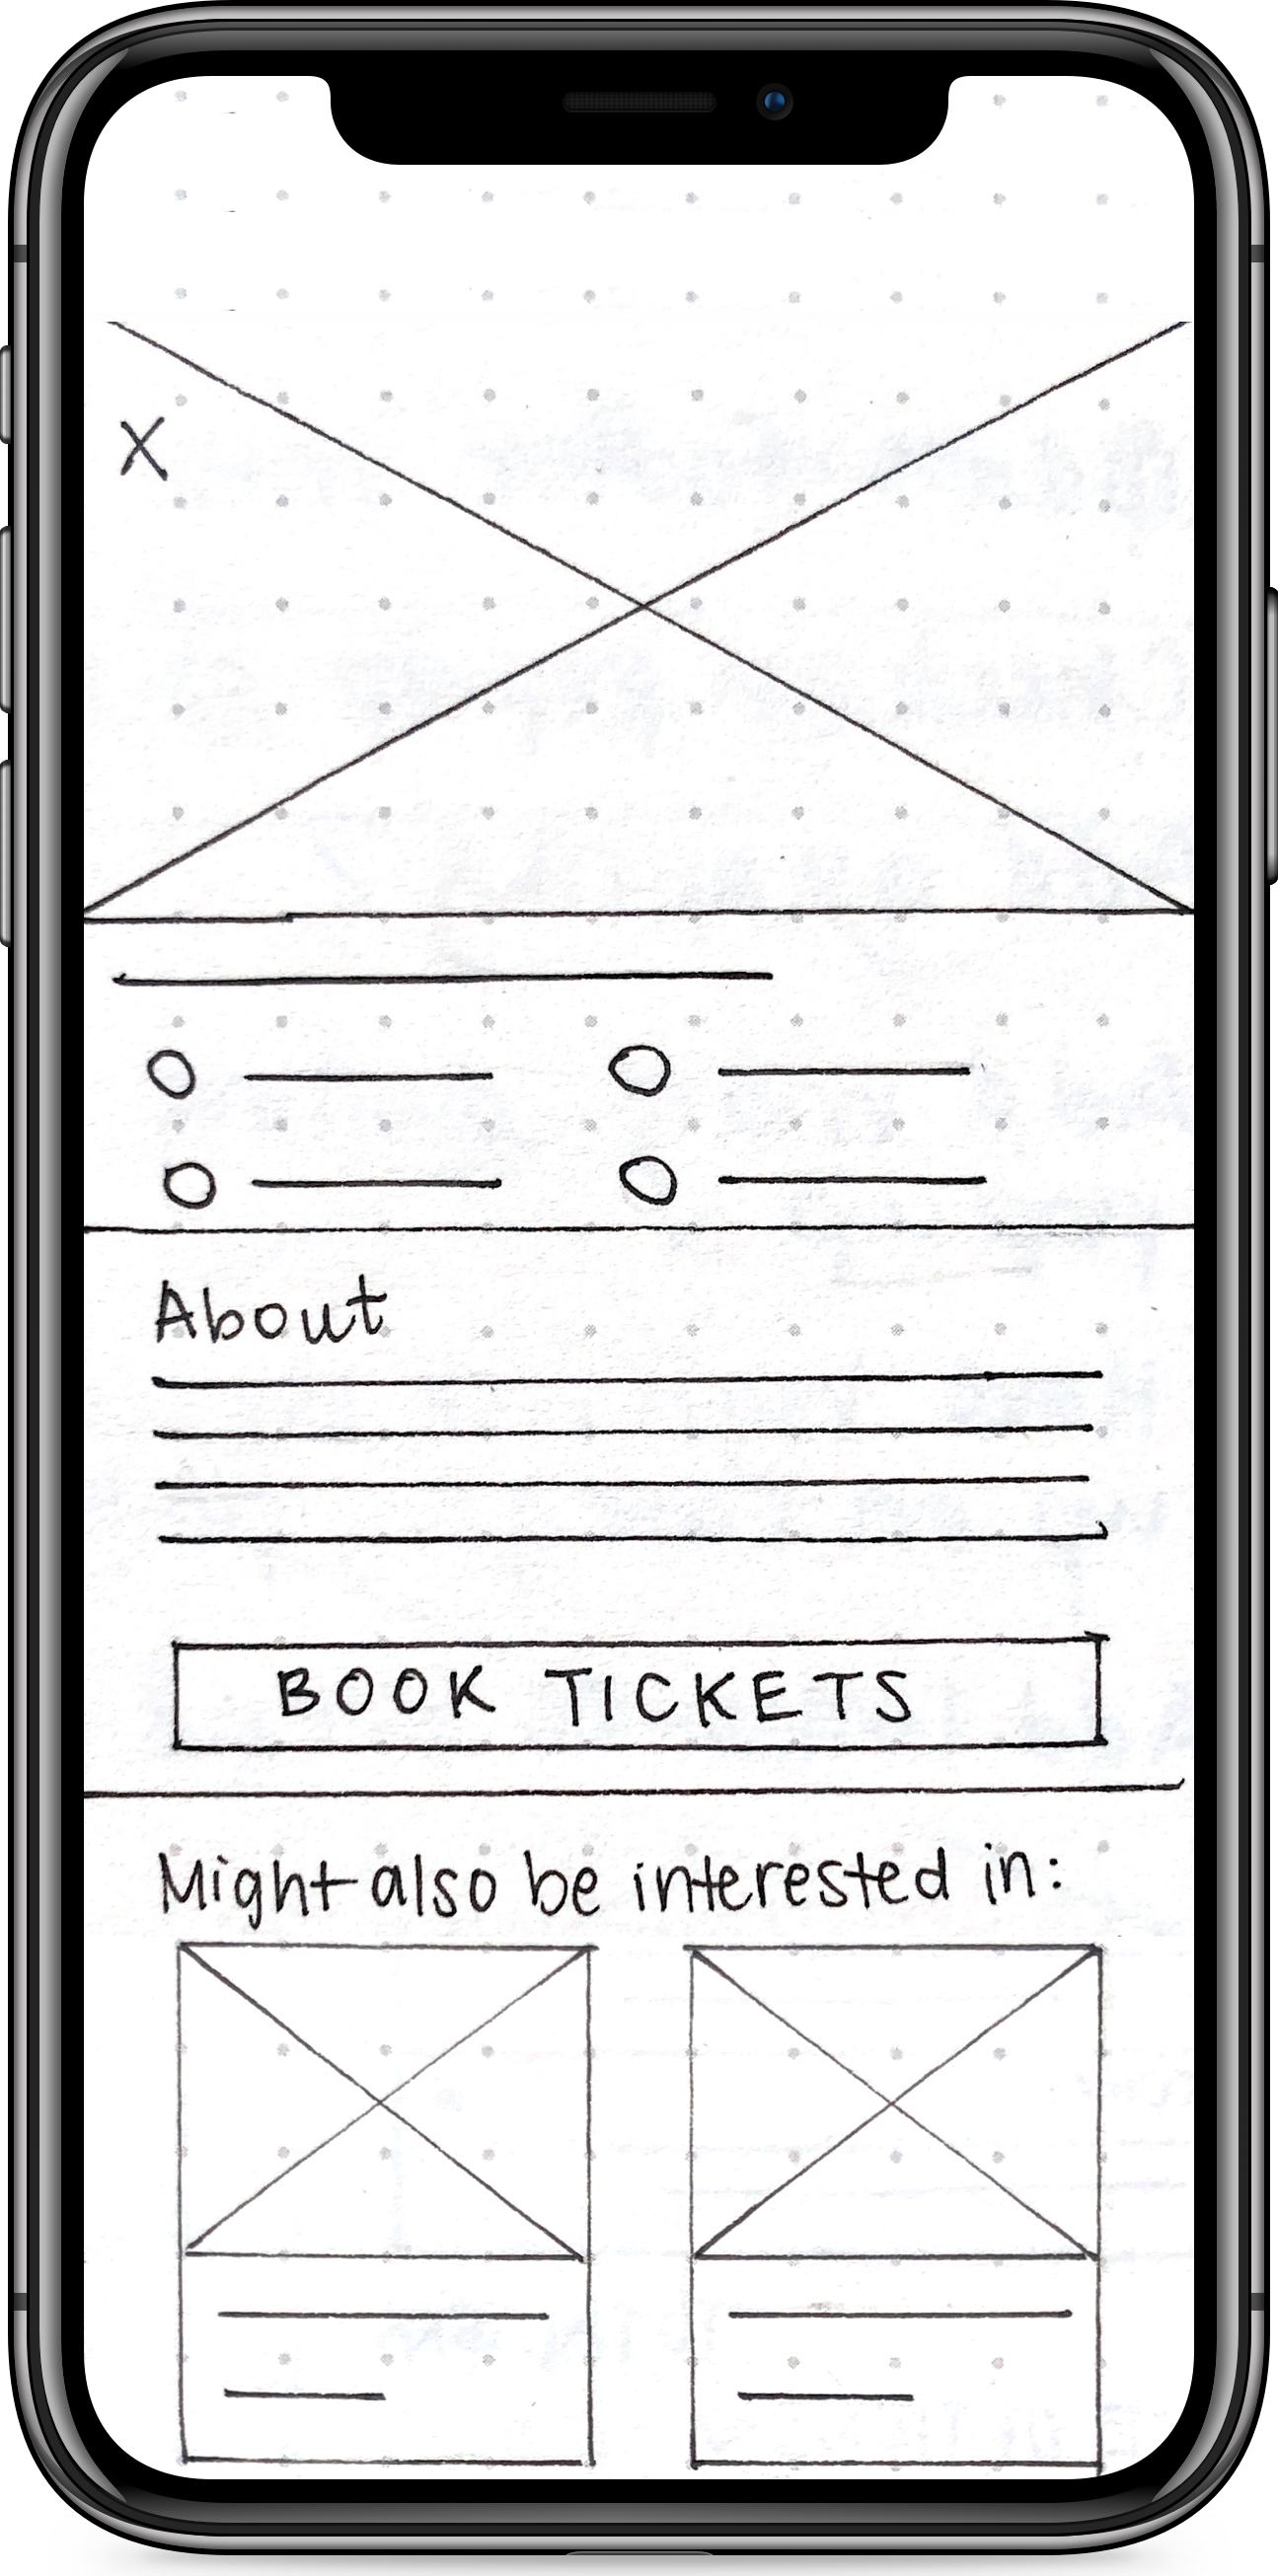 X
About
BOOK TICKETS
Might also be interested in: